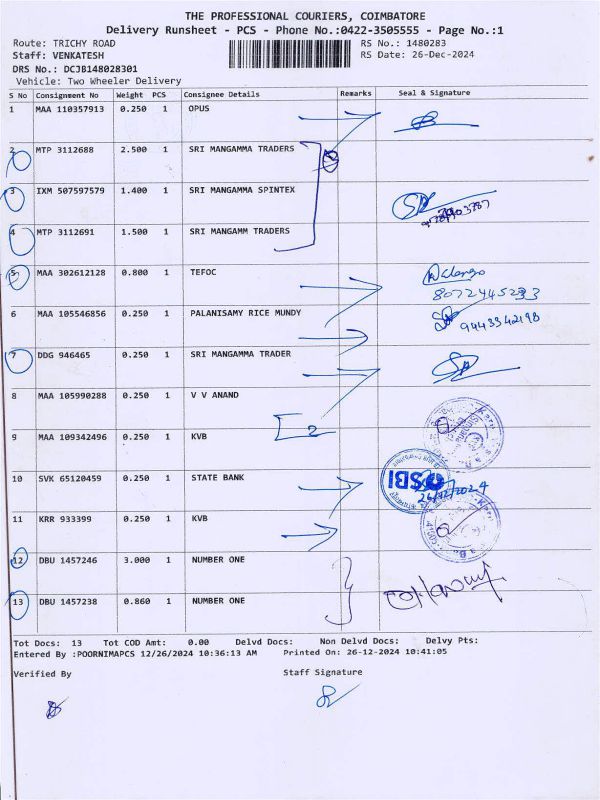 THE PROFESSIONAL COURIERS, COIMBATORE
Delivery Runsheet - PCS - Phone No.:0422-3505555 - Page No.:1
Route: TRICHY ROAD RS No.: 1480283
Staff: VENKATESH RS Date: 26-Dec-2024
DRS No.: DCJB148028301
Vehicle: Two Wheeler Delivery
S No Consignment No Weight PCS Consignee Details Remarks Seal & Signature
1 MAA 110357913 0.250 1 OPUS
2 MTP 3112688 2.500 1 SRI MANGAMMA TRADERS
3 IXM 507597579 1.400 1 SRI MANGAMMA SPINTEX
4 MTP 3112691 1.500 1 SRI MANGAMM TRADERS
5 MAA 302612128 0.800 1 TEFOC
8072445233
6 MAA 105546856 0.250 1 PALANISAMY RICE MUNDY 9443342198
7 DDG 946465 0.250 1 SRI MANGAMMA TRADER
8 MAA 105990288 0.250 1 V V ANAND
2
9 MAA 109342496 0.250 1 KVB
10 SVK 65120459 0.250 1 STATE BANK SBI
26/12/2024
11 KRR 933399 0.250 1 KVB
12 DBU 1457246 3.000 1 NUMBER ONE
13 DBU 1457238 0.860 1 NUMBER ONE
Tot Docs: 13 Tot COD Amt: 0.00 Delvd Docs: Non Delvd Docs: Delvy Pts:
Entered By :POORNIMAPCS 12/26/2024 10:36:13 AM Printed On: 26-12-2024 10:41:05
Verified By Staff Signature